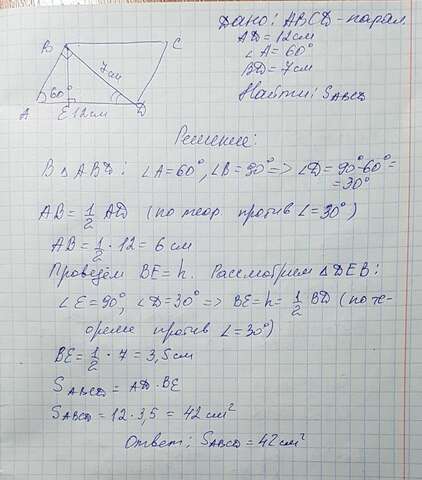 Дано: ABCD - парал.
AD = 12см
∠A = 60°
BD = 7см
Найти: S ABCD
B
C
7см
60°
A
E 12см
D
Решение:
В △ ABD: ∠A=60°, ∠B=90° => ∠D = 90°-60°=
= 30°
AB = 1/2 AD (по теор. против ∠=30°)
AB = 1/2 · 12 = 6 см
Проведём BE = h. Рассмотрим △ DEB:
∠E = 90°, ∠D=30° => BE = h = 1/2 BD (по те-
ореме против ∠ = 30°)
BE = 1/2 · 7 = 3,5 см
S ABCD = AD · BE
S ABCD = 12 · 3,5 = 42 см²
Ответ: S ABCD = 42 см²